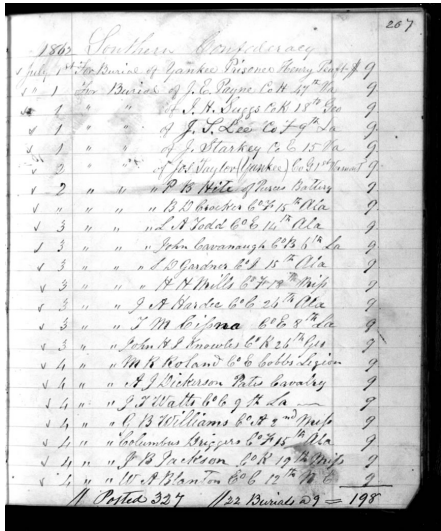 207
1862 Southern Confederacy
July 1st For Burial of Yankee Prisoner Henry 9
" 1 For Burial of J. E. Payne Co H 47th Va 9
" 1 " " of J. H. Suggs Co K 18th Geo 9
" 1 " " of J. S. Lee Co F 9th La 9
" 1 " " of J. Starkey Co E 15 Va 9
" 2 " " of Jos Taylor (Yankee) Co G 1st 9
" 2 " " P B Hite of Purcis Battery 9
" " " " B D Crocker Co F 15th Ala 9
" 3 " " L A Todd Co E 14th Ala 9
" 3 " " John Cavanaugh Co B 6th La 9
" 3 " " S D Gardner Co I 15th Ala 9
" 3 " " H H Mills Co F 18th Miss 9
" 3 " " J A Harder Co C 24th Ala 9
" 3 " " T M Co E 8th La 9
" 3 " " John H J Knowles Co K 24th Geo 9
" 4 " " M R Roland Co E Cobbs Legion 9
" 4 " " A J Dickerson Cavalry 9
" 4 " " J F Watts Co C 9th La 9
" 4 " " C B Williams Co A 2nd Miss 9
" 4 " " Columbus Driggers Co F 15th Ala 9
" 4 " " J B Jackson Co K 19th Miss 9
" 4 " " W A Blanton Co C 12th N C 9
// Posted 327 // 22 Burials a 9 = 198